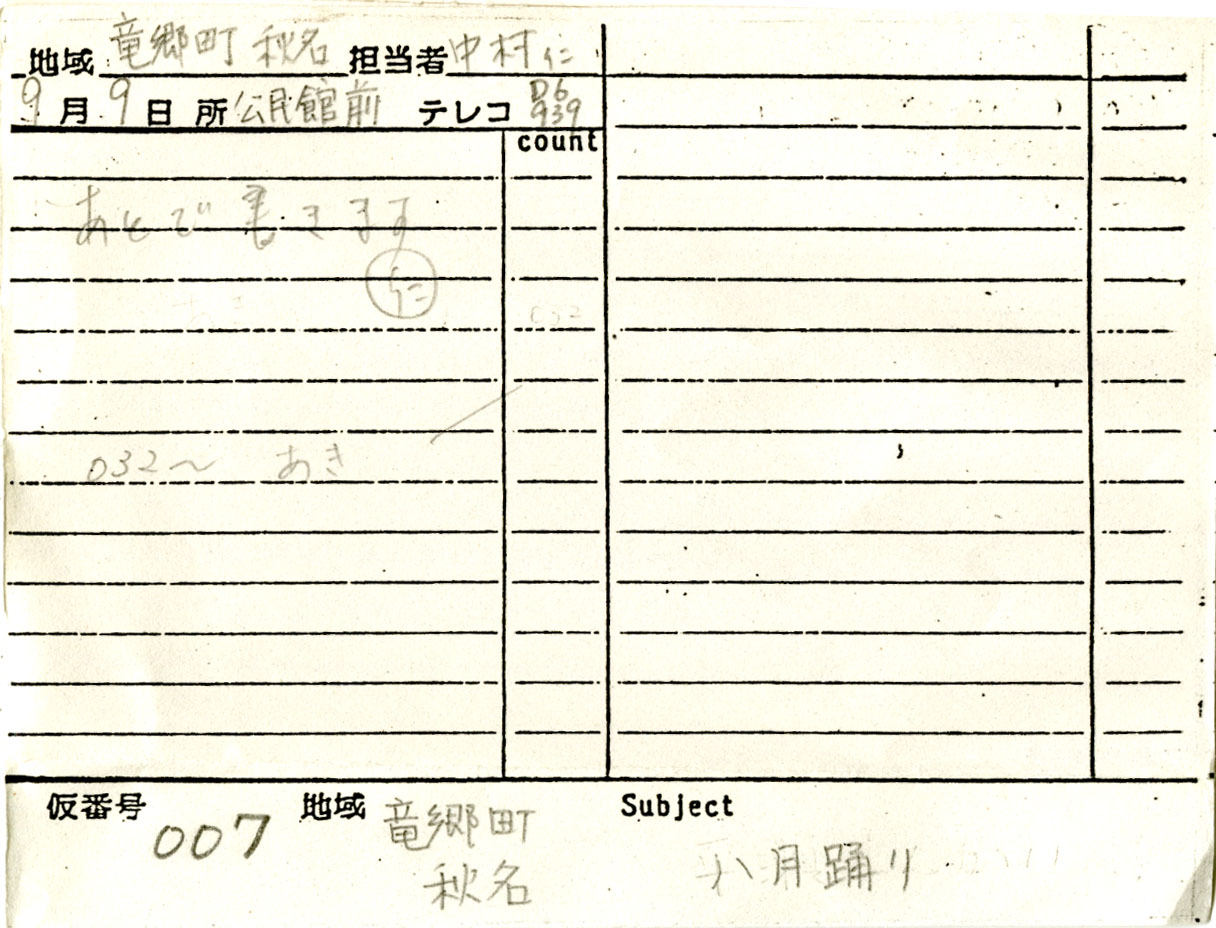 地域 竜郷町 秋名 担当者 中村仁
9月9日 所 公民館前 テレコ D6 939
count
あとで書きます
仁
032～ あき
仮番号 007 地域 竜郷町 秋名 Subject 八月踊り